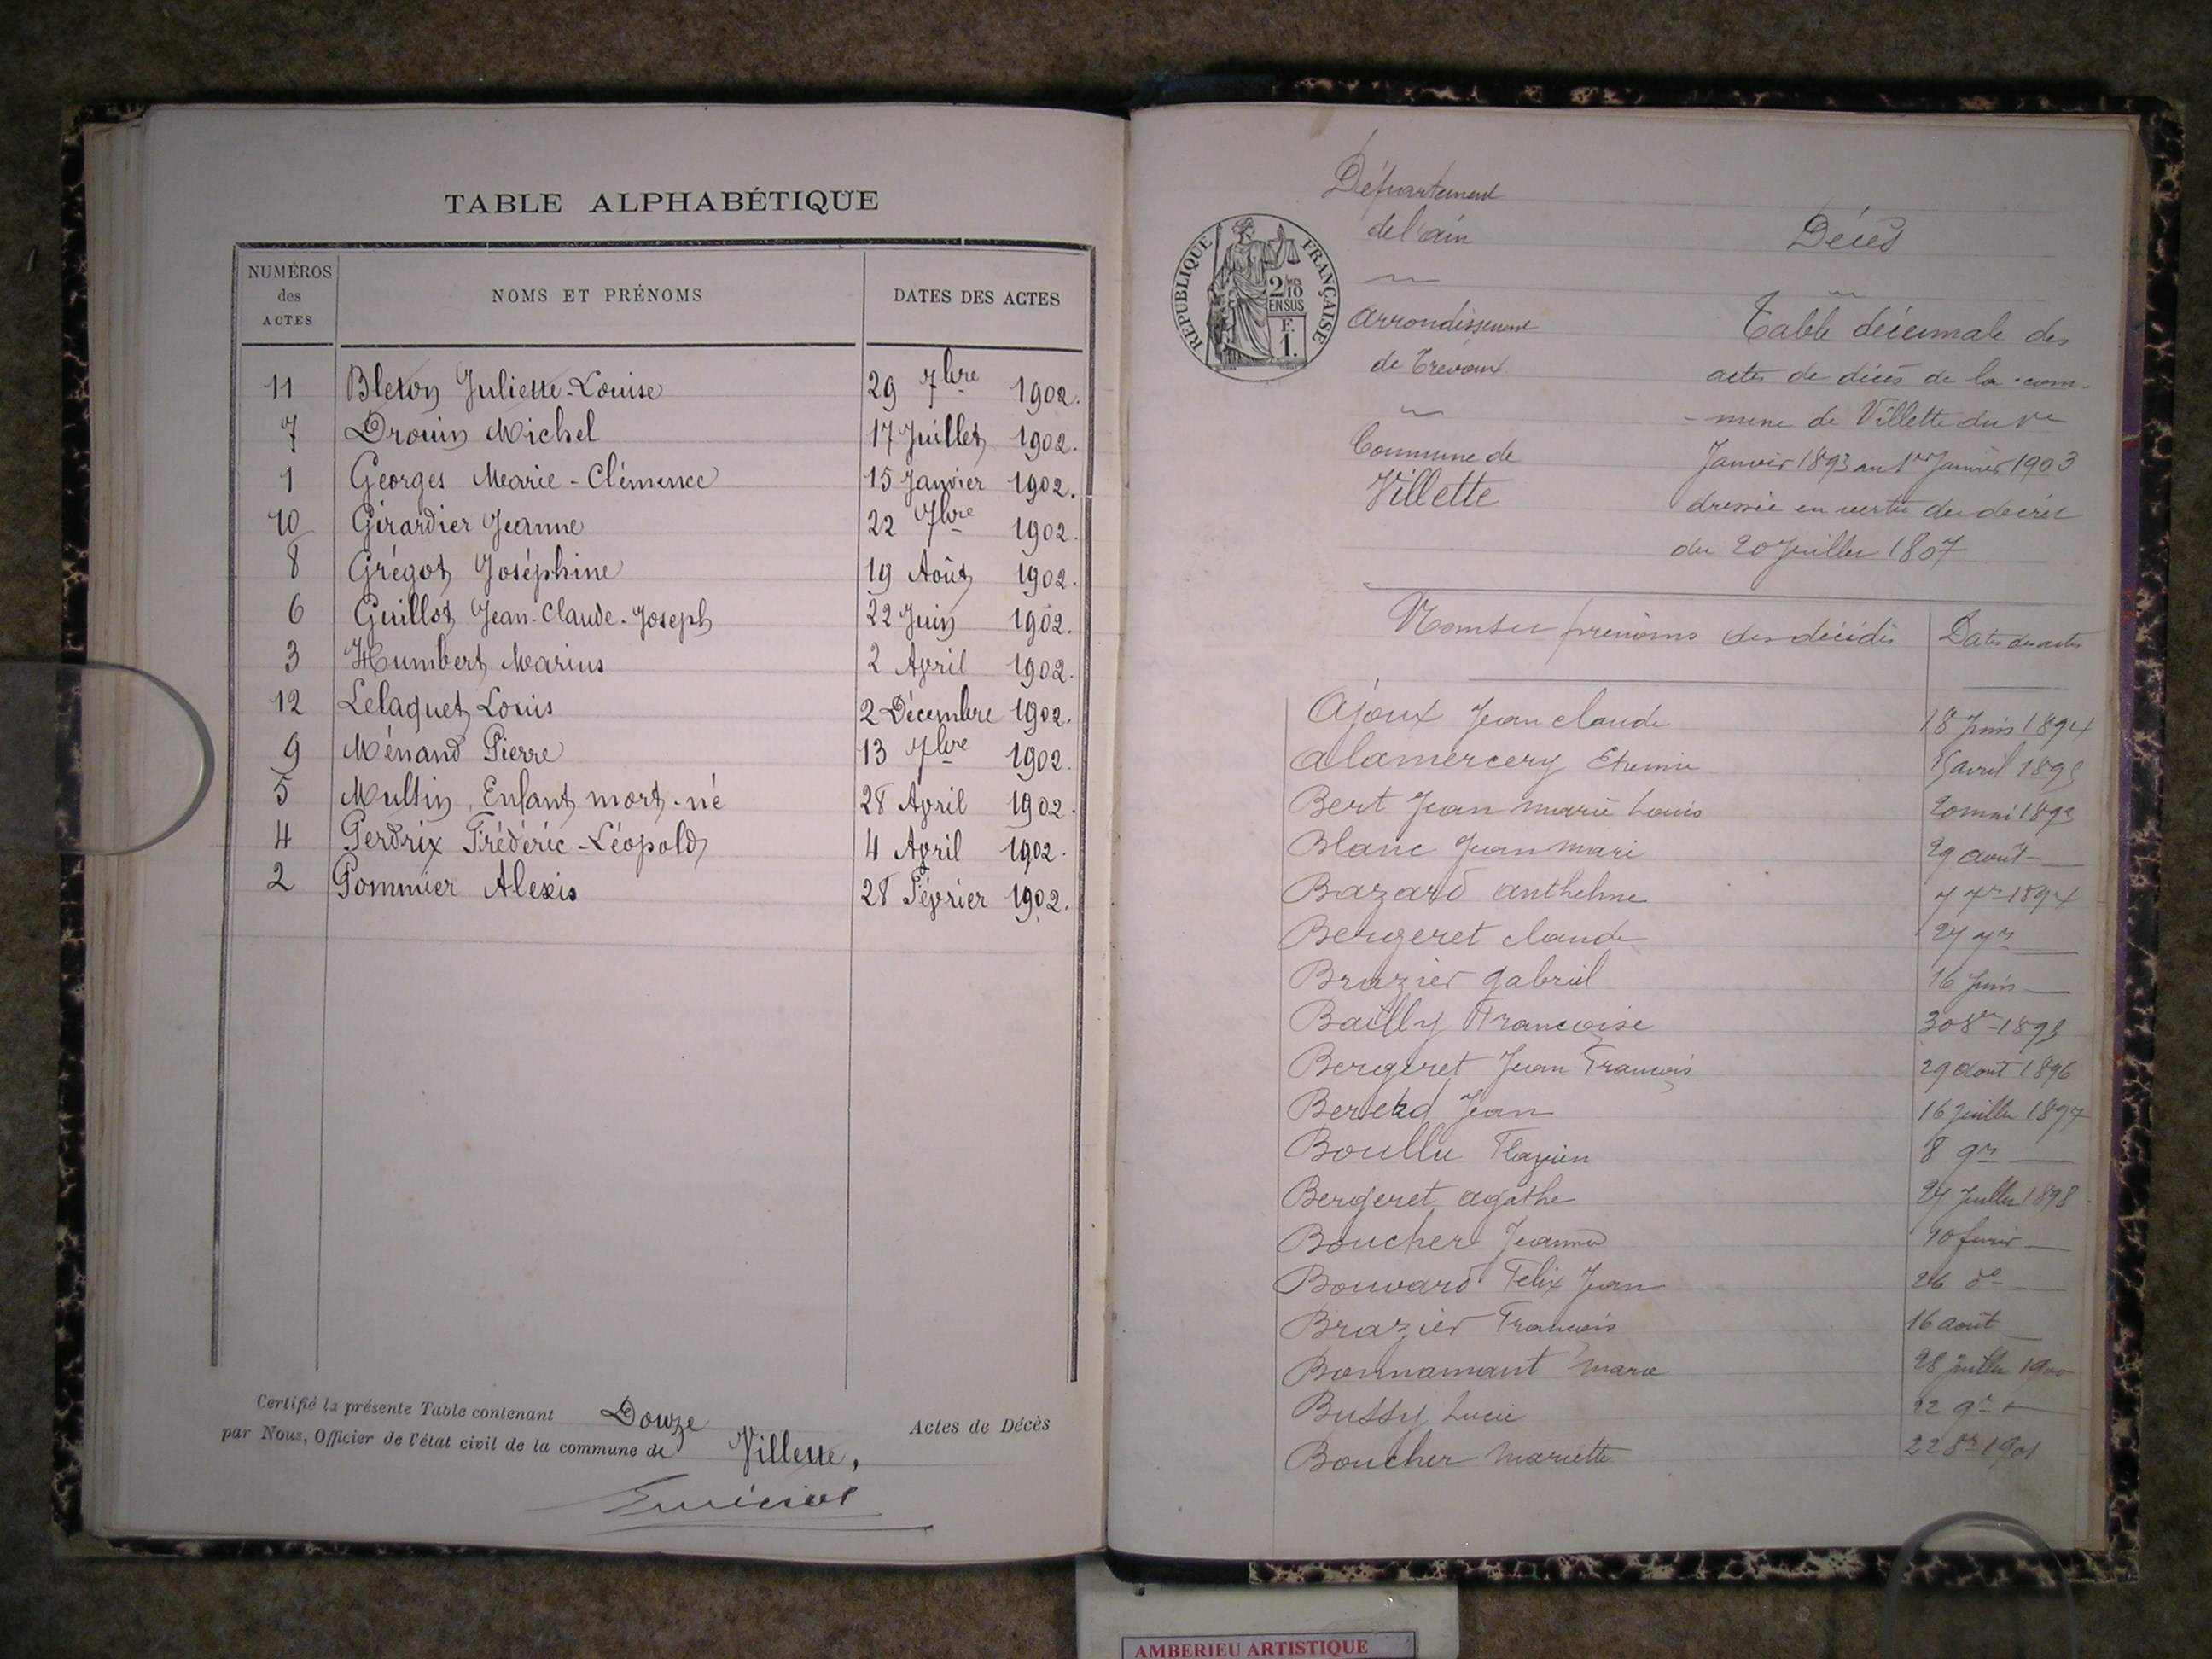 TABLE ALPHABÉTIQUE
NUMÉROS des ACTES NOMS ET PRÉNOMS DATES DES ACTES
11 Bleton Juliette-Louise 29 7bre 1902.
7 Drouin Michel 17 Juillet 1902.
1 Georges Marie-Clémence 15 Janvier 1902.
10 Girardier Jeanne 22 7bre 1902.
8 Grégot Joséphine 19 Août 1902.
6 Guillot Jean-Claude-Joseph 22 Juin 1902.
3 Humbert Marius 2 Avril 1902.
12 Lelaquet Louis 2 Décembre 1902.
9 Ménand Pierre 13 7bre 1902.
5 Multin, Enfant mort-né 28 Avril 1902.
4 Perdrix Frédéric-Léopold 4 Avril 1902.
2 Pommier Alexis 28 Février 1902.
Certifié la présente Table contenant Douze Actes de Décès
par Nous, Officier de l'état civil de la commune de Villette,
RÉPUBLIQUE FRANÇAISE
2/10
EN SUS
F.
1.
Département
de l'ain
Arrondissement
de Trevoux
Commune de
Villette
Décès
Table décennale des
actes de décès de la com-
-mune de Villette du 1er
Janvier 1893 au 1er Janvier 1903
dressée en vertu du décret
du 20 Juillet 1807
Noms et prénoms des décédés Dates des actes
Ajoux Jean claude 18 Juin 1894
Alamercery Etienne avril 1895
Bert Jean marie Louis 20 mai 1893
Blanc Jean mari 29 août —
Bazard anthelme 7 7re 1894
Bergeret claude 27 7re —
Brazier gabriel 16 Juin —
Bailly Francoise 30 8re 1895
Bergeret Jean François 29 Aout 1896
Jean 16 Juillet 1897
Boullu Flavien 8 9re —
Bergeret agathe 27 Juillet 1898
Boucher Jeanne 10 fevrier —
Bouvard Felix Jean 26 do —
Brazier François 16 août —
Bonnamant marie 28 Juillet 1900
Bussy Lucie 22 9re —
Boucher Mariette 22 8re 1901
AMBERIEU ARTISTIQUE